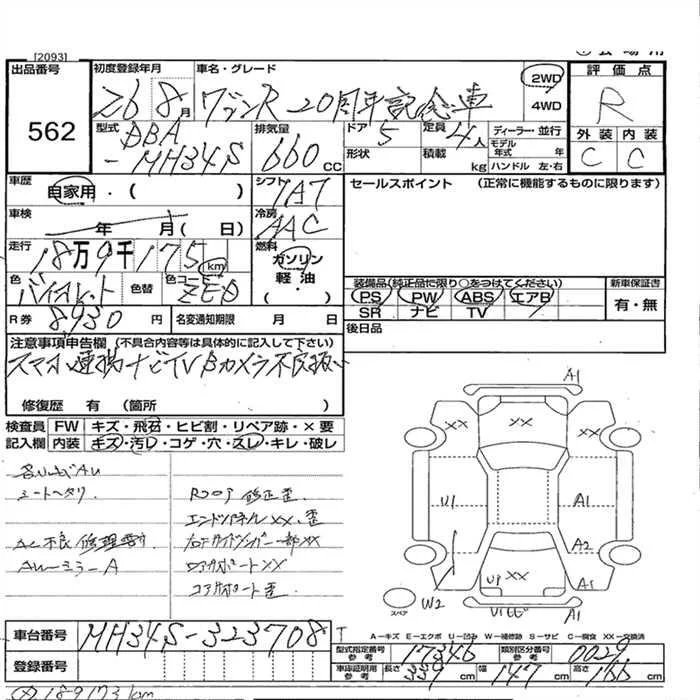 [2093]
出品番号
562
初度登録年月
26 8月
車名・グレード
ワゴンR 20周年記念車
2WD
4WD
評価点
R
外装 内装
C C
型式
DBA
-MH34S
排気量
660 CC
ドア 5
形状
定員 4人
積載 kg
ディーラー・並行
モデル年式 年
ハンドル 左・右
車歴
自家用・( )
シフト
車検
年 月( 日)
冷房
AAC
走行
18万9千175 km
燃料
ガソリン
軽油・
( )
色
バイオレット
色替
色コード
ZE0
R券 8930 円
名変通知期限 月 日
セールスポイント (正常に機能するものに限ります)
装備品(純正品に限り○をつけてください)
PS PW ABS エアB
SR ナビ TV
新車保証書
有・無
後日品
注意事項申告欄 (不具合内容等は具体的に記入して下さい)
スマホ連携ナビTVBカメラ不良扱い
修復歴 有 (箇所 )
検査員記入欄
FW キズ・飛石・ヒビ割・リペア跡・×要
内装 キズ・汚レ・コゲ・穴・スレ・キレ・破レ
シートヘタリ
AC不良 修理要す
AUミラーA
Rフロア 修正歪
エンドパネルXX、歪
右Rサイドメンバー一部XX
ロアサポートXX
コアサポート歪
A1
XX
XX
XX
U1
A1
A2
UP XX
W2
A1
スペア
A1
A-キズ E-エクボ U-凹み W-補修跡 S-サビ C-腐食 XX-交換済
車台番号
MH34S-323708
登録番号
型式指定番号
参考
17346
類別区分番号
参考
0029
車庫証明用
参考
長さ 339 cm
幅 147 cm
高さ 166 cm
189173km